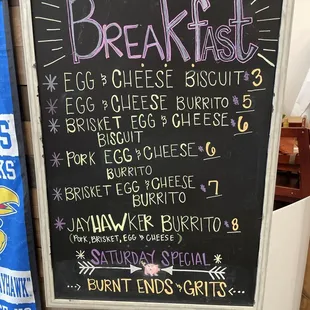 BreaKfast
EGG & CHEESE BISCUIT $3
EGG & CHEESE BURRITO $5
BRISKET EGG & CHEESE $6
BISCUIT
PORK EGG & CHEESE $6
BURRITO
BRISKET EGG & CHEESE $7
BURRITO
JAYHAWKER BURRITO $8
(PORK, BRISKET, EGG & CHEESE)
SATURDAY SPECIAL
BURNT ENDS & GRITS